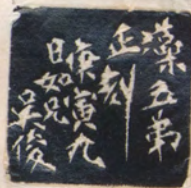 藻五弟
正刻
庚寅九
日如兄
吳俊